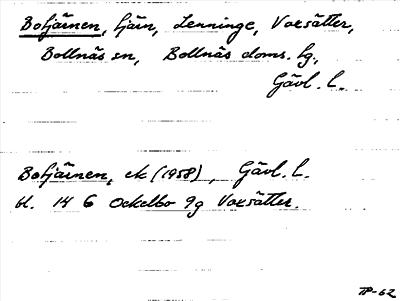 Botjärnen, tjärn, Lenninge, Voxsätter,
Bollnäs sn, Bollnäs doms. hg.,
Gävl. l.
Botjärnen, ek (1958), Gävl. l.
bl. 14 G Ockelbo 9g Voxsätter.
TP-62